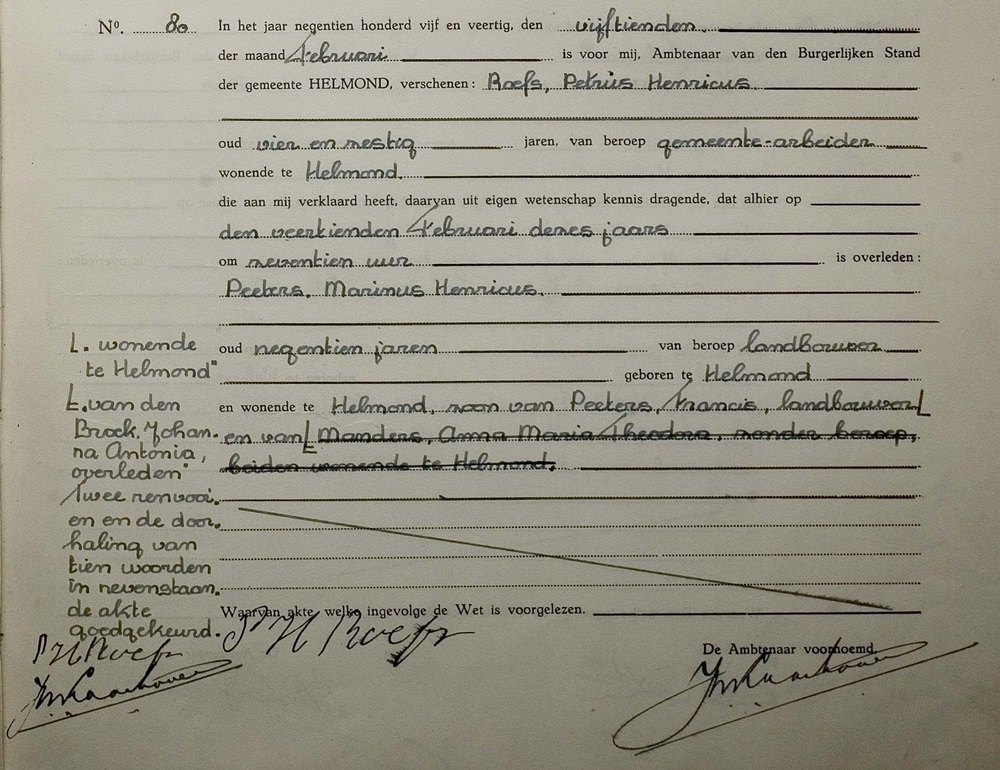 Nº. 80 In het jaar negentien honderd vijf en veertig, den vijftienden
der maand Februari is voor mij, Ambtenaar van den Burgerlijken Stand
der gemeente HELMOND, verschenen: Roefs, Petrus Henricus
oud vier en zestig jaren, van beroep gemeente-arbeider
wonende te Helmond
die aan mij verklaard heeft, daarvan uit eigen wetenschap kennis dragende, dat alhier op
den veertienden Februari dezes jaars
om zeventien uur is overleden:
Peeters, Marinus Henricus.
oud negentien jaren van beroep landbouwer
geboren te Helmond
en wonende te Helmond, zoon van Peeters, Francis, landbouwer
en van Manders, Anna Maria Theodora, zonder beroep,
beiden wonende te Helmond.
L. wonende
te Helmond"
L. van den
Broek, Johan-
na Antonia,
overleden"
Twee renvooi-
en en de door-
haling van
tien woorden
in nevenstaan-
de akte
goedgekeurd.
P H Roefs
Waarvan akte, welke ingevolge de Wet is voorgelezen.
P H Roefs
De Ambtenaar voornoemd,